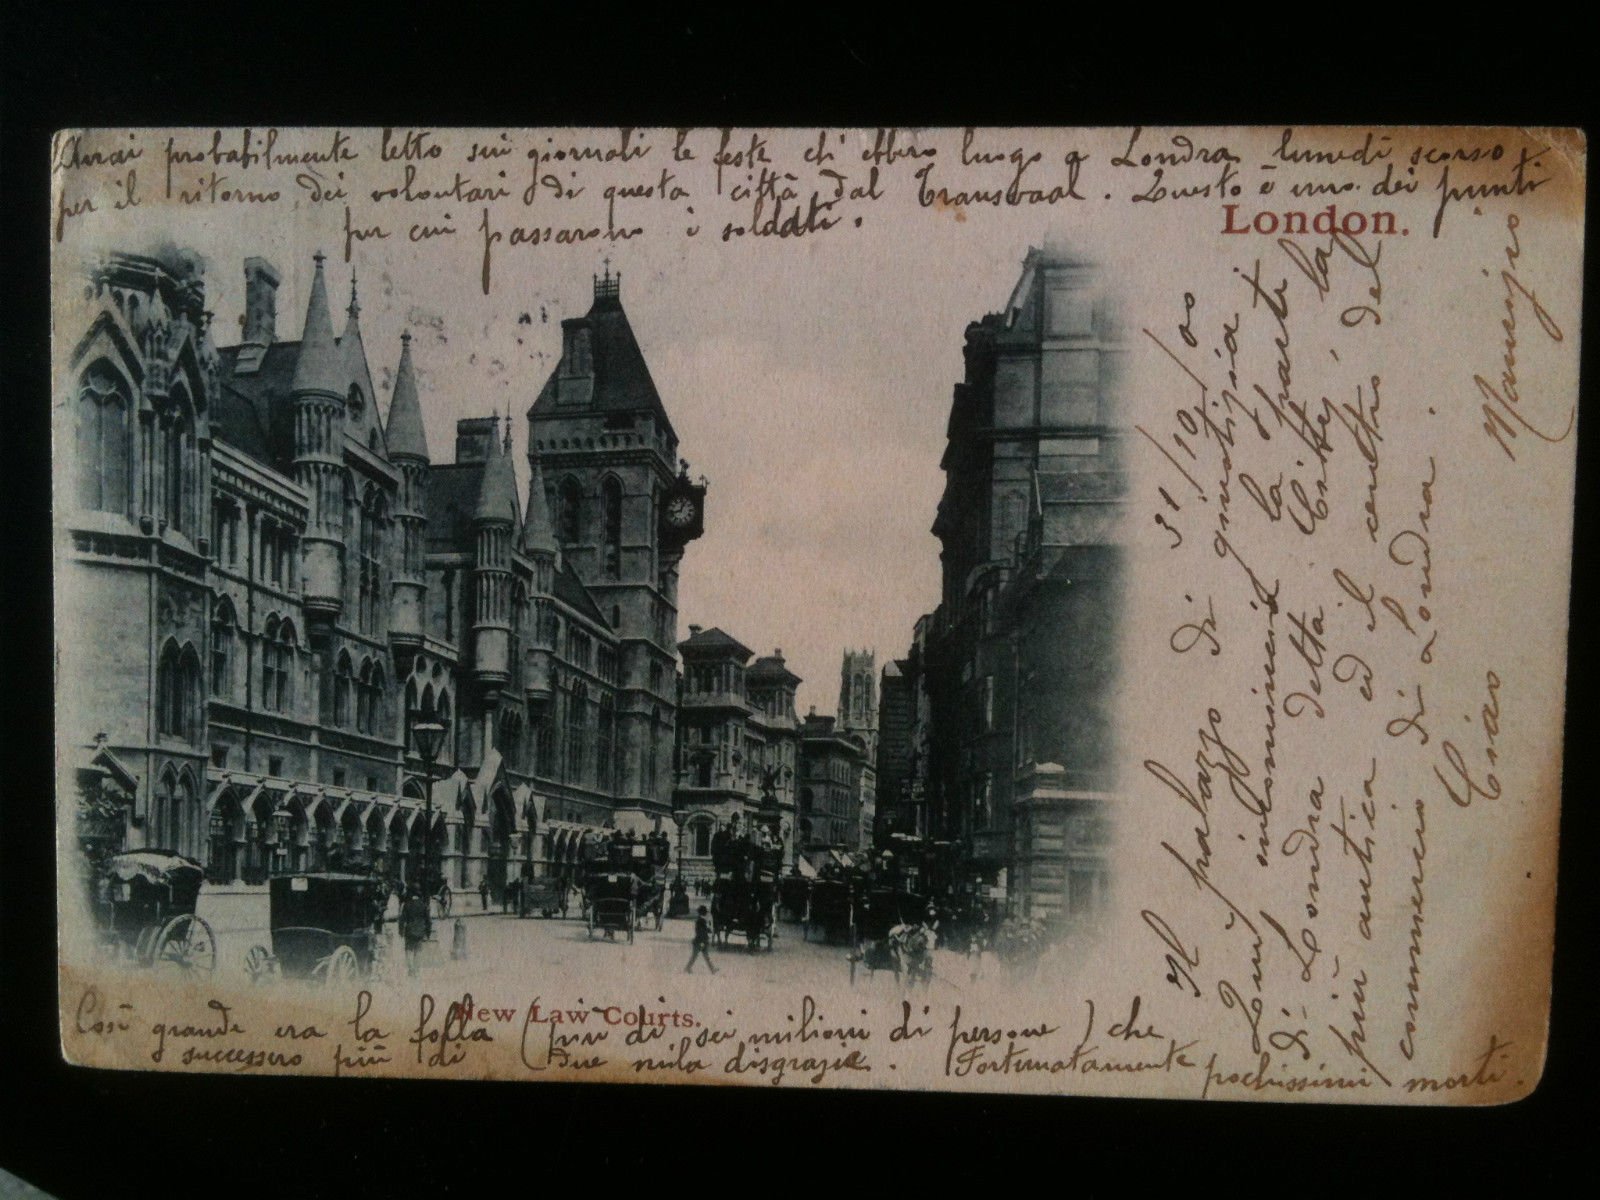 Avrai probabilmente letto sui giornali le feste ch' ebbero luogo a Londra lunedì scorso
per il ritorno dei volontari di questa città dal Transvaal. Questo è uno dei punti
per cui passarono i soldati.
London.
New Law Courts.
Così grande era la folla (più di sei milioni di persone) che
successero più di due mila disgrazie. Fortunatamente pochissimi morti.
31/10/00
Il palazzo di giustizia
Qui incomincia la parte
di Londra detta City, la
più antica ed il centro del
commercio di Londra.
Ciao Maurizio